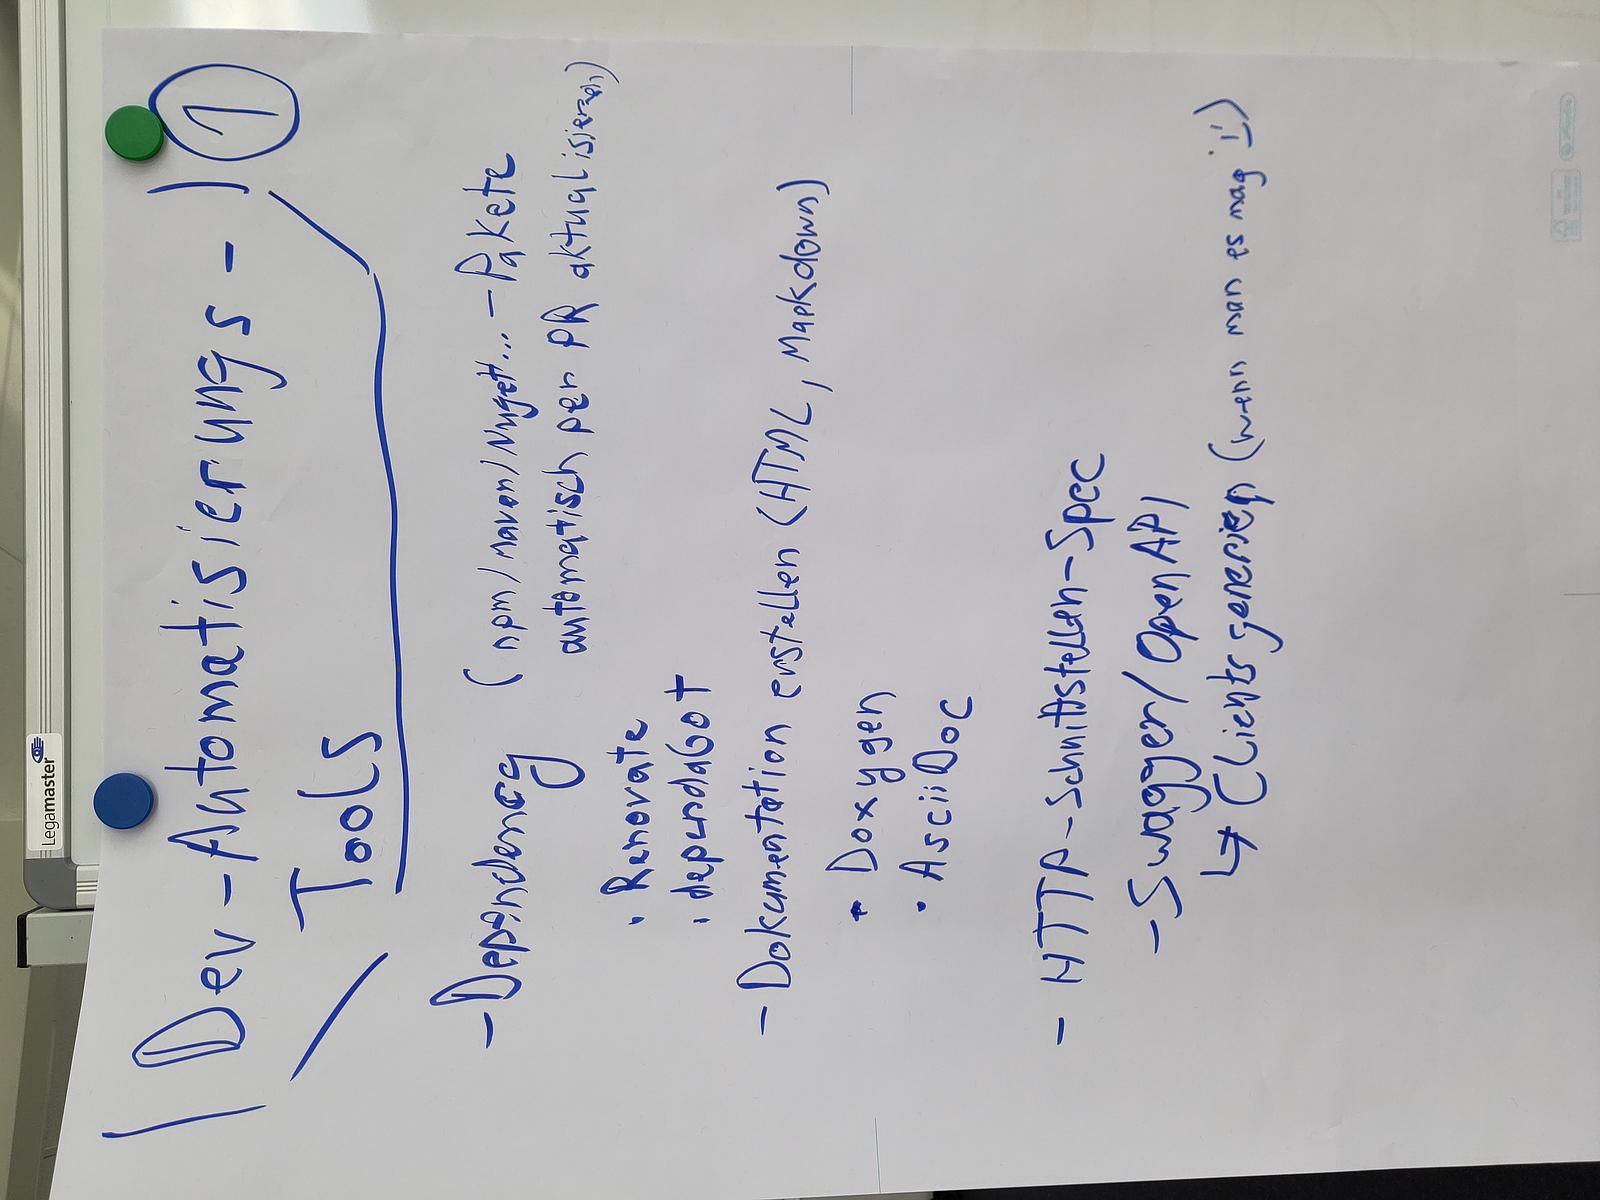 Legamaster
Dev-Automatisierungs-
Tools
1
- Dependency (npm/Maven/Nuget... - Pakete
automatisch per PR aktualisieren)
• Renovate
• dependabot
- Dokumentation erstellen (HTML, Markdown)
• Doxygen
• AsciiDoc
- HTTP-Schnittstellen-Spec
- Swagger/OpenAPI
↳ Clients generieren (wenn man es mag :))